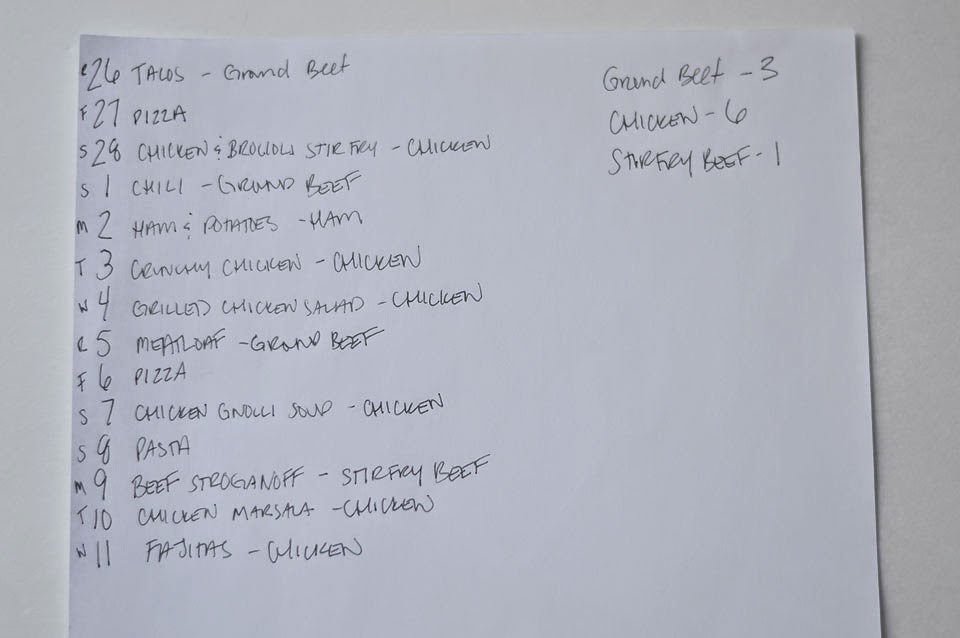 R26 TACOS - Ground Beef
F27 PIZZA
S28 CHICKEN & BROCCOLI STIR FRY - CHICKEN
S 1 CHILI - GROUND BEEF
M 2 HAM & POTATOES - HAM
T 3 CRUNCHY CHICKEN - CHICKEN
W 4 GRILLED CHICKEN SALAD - CHICKEN
R 5 MEATLOAF - GROUND BEEF
F 6 PIZZA
S 7 CHICKEN GNOCCI SOUP - CHICKEN
S 8 PASTA
M 9 BEEF STROGANOFF - STIRFRY BEEF
T 10 CHICKEN MARSALA - CHICKEN
W 11 FAJITAS - CHICKEN
Ground Beef - 3
CHICKEN - 6
STIRFRY BEEF - 1